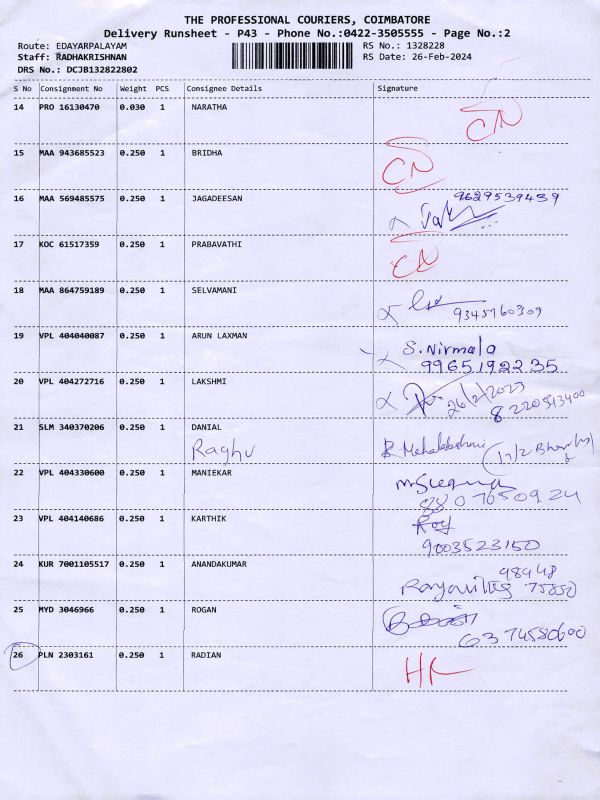 THE PROFESSIONAL COURIERS, COIMBATORE
Delivery Runsheet - P43 - Phone No.:0422-3505555 - Page No.:2
Route: EDAYARPALAYAM RS No.: 1328228
Staff: RADHAKRISHNAN RS Date: 26-Feb-2024
DRS No.: DCJB132822802
S No Consignment No Weight PCS Consignee Details Signature
14 PRO 16130470 0.030 1 NARATHA CN
15 MAA 943685523 0.250 1 BRIDHA CN
16 MAA 569485575 0.250 1 JAGADEESAN 9629539439
17 KOC 61517359 0.250 1 PRABAVATHI CN
18 MAA 864759189 0.250 1 SELVAMANI 9345760309
19 VPL 404040087 0.250 1 ARUN LAXMAN S. Nirmala
9965192235
20 VPL 404272716 0.250 1 LAKSHMI 26/2/2023
8220513400
21 SLM 340370206 0.250 1 DANIAL
Raghu Mahalakshmi
22 VPL 404330600 0.250 1 MANIEKAR
8807650924
23 VPL 404140686 0.250 1 KARTHIK Roy
9003523150
24 KUR 7001105517 0.250 1 ANANDAKUMAR 98948
75850
25 MYD 3046966 0.250 1 ROGAN
6374580600
26 PLN 2303161 0.250 1 RADIAN HR